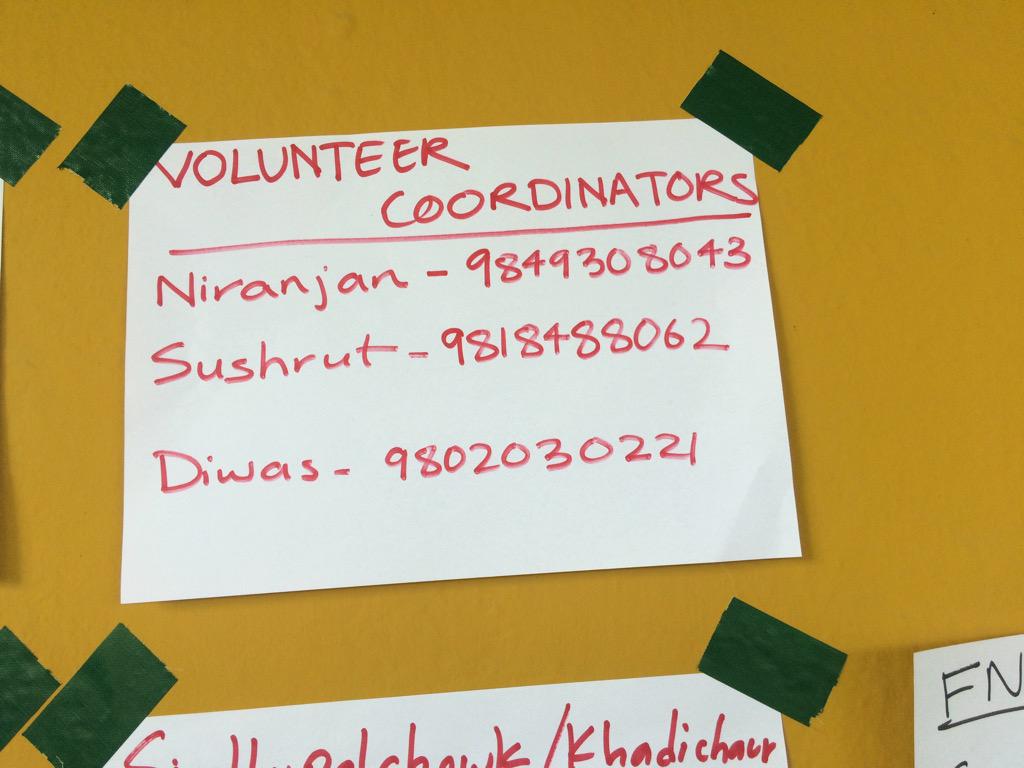 VOLUNTEER
COORDINATORS
Niranjan - 9849308043
Sushrut - 9818488062
Diwas - 9802030221
/Khadichaur
FN